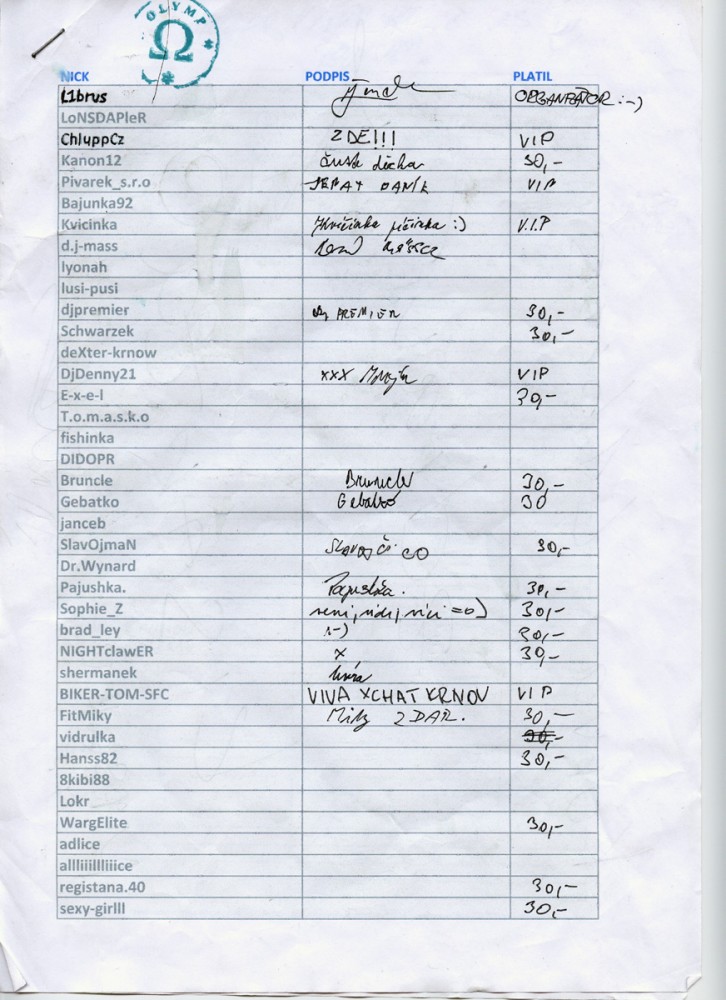 OLYMP
Ω
NICK PODPIS PLATIL
L1brus ORGANIZÁTOR :-)
LoNSDAPleR
ChluppCz ZDE!!! VIP
Kanon12 30,-
Pivarek_s.r.o VIP
Bajunka92
Kvicinka Kvičinka :) V.I.P
d.j-mass
lyonah
lusi-pusi
djpremier PREMIER 30,-
Schwarzek 30,-
deXter-krnow
DjDenny21 xxx VIP
E-x-e-l 30,-
T.o.m.a.s.k.o
fishinka
DIDOPR
Bruncle Bruncle 30,-
Gebatko Gebatko 30
janceb
SlavOjmaN 30,-
Dr.Wynard
Pajushka. Pajushka. 30,-
Sophie_Z není, nidej, nici =o) 30,-
brad_ley :-) 30,-
NIGHTclawER x 30,-
shermanek
BIKER-TOM-SFC VIVA XCHAT KRNOV VIP
FitMiky Miky ZDAR. 30,-
vidrulka 30,-
Hanss82 30,-
8kibi88
Lokr
WargElite 30,-
adlice
allliiilllliiice
registana.40 30,-
sexy-girlll 30,-